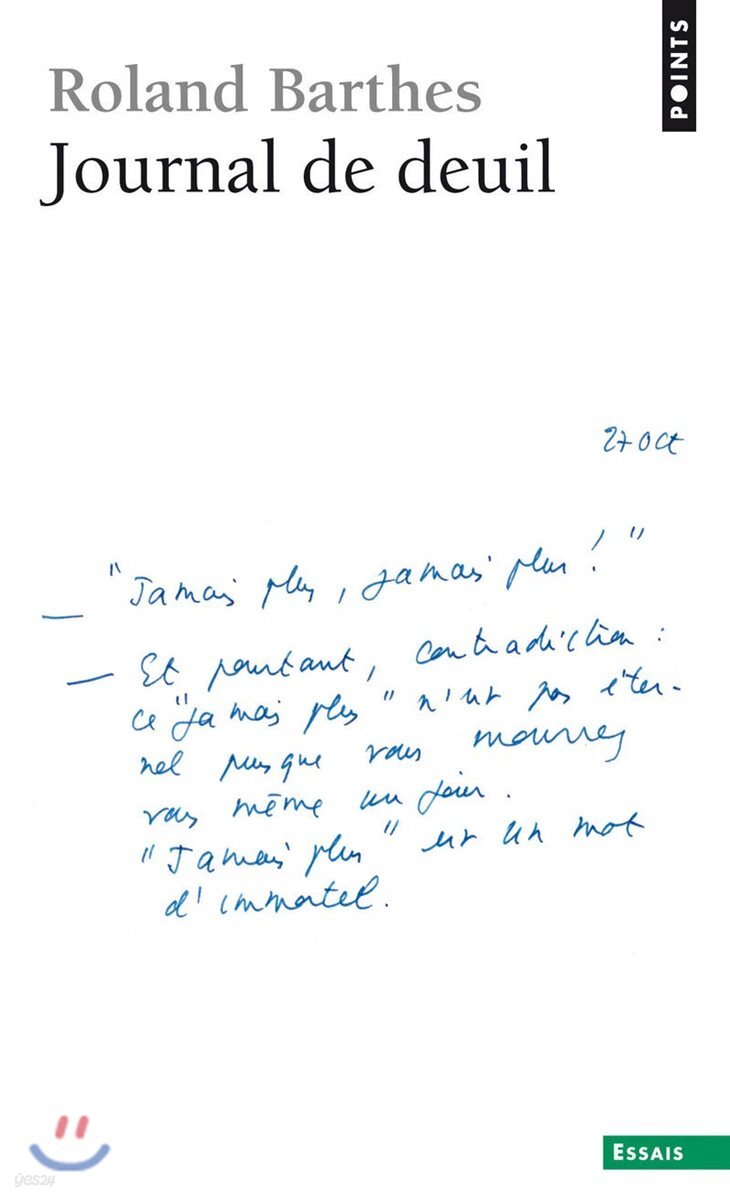 Roland Barthes
Journal de deuil
POINTS
27 oct
— "Jamais plus, jamais plus!"
— Et pourtant, contradiction :
ce "jamais plus" n'est pas éter-
nel puisque vous mourrez
vous même un jour.
"Jamais plus" est un mot
d'immortel.
yes24
ESSAIS